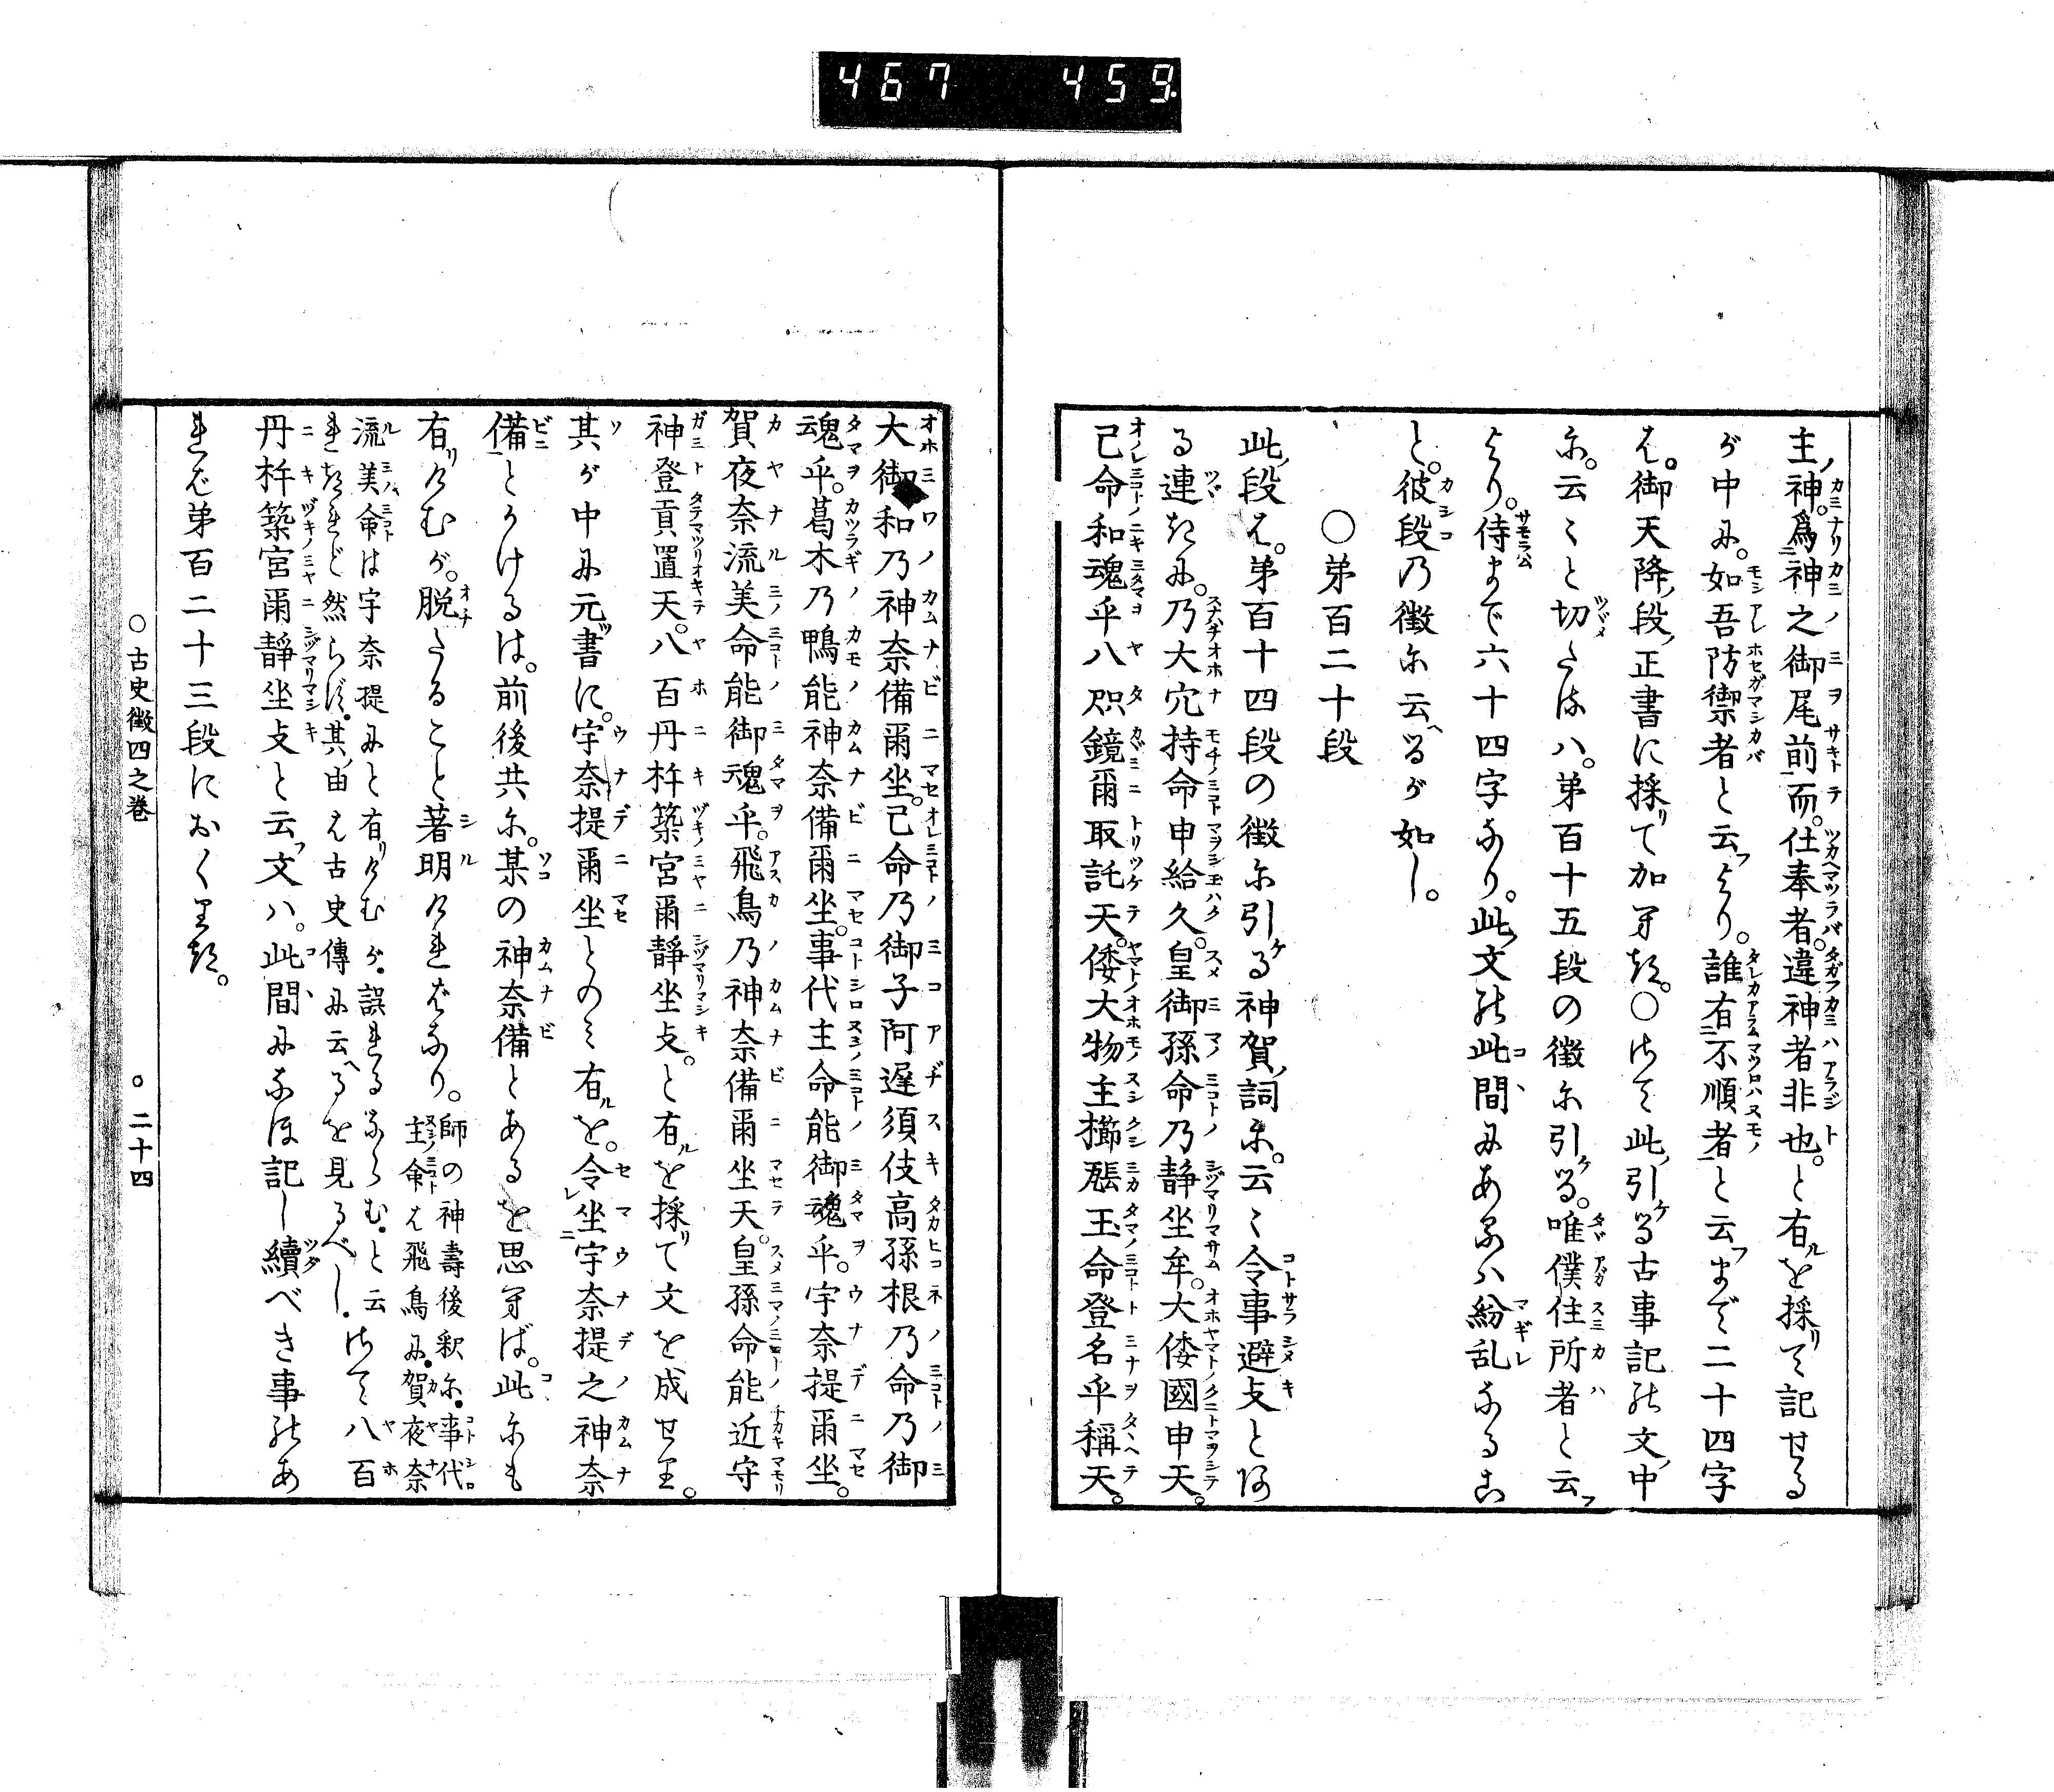 467 459
主ノ神。爲ニ神之御尾前而。仕奉者。違神者非也。と有ルを採リて記せる
が中に。如吾防禦者と云フより。誰有不順者と云フまで二十四字
は。御天降ノ段ノ正書に採リて加ふ。○さて此ノ引ケる古事記の文ノ中
に。云々と切たるハ。第百十五段の徴に引ケる。唯僕住所者と云フ
より。侍まで六十四字なり。此ノ文の此間にあるハ紛乱なるこ
と。彼段乃徴に云ヘるが如し。
○第百二十段
此ノ段は。第百十四段の徴に引ケる神賀ノ詞に。云々令事避支とあ
る連きに。乃大穴持命申給久。皇御孫命乃静坐牟。大倭國申天。
己命和魂乎八咫鏡爾取託天。倭大物主櫛𤭖玉命登名乎稱天。
大御和乃神奈備爾坐。己命乃御子阿遅須伎高孫根乃命乃御
魂乎。葛木乃鴨能神奈備爾坐。事代主命能御魂乎。宇奈提爾坐。
賀夜奈流美命能御魂乎。飛鳥乃神奈備爾坐天。皇孫命能近守
神登貢置天。八百丹杵築宮爾靜坐支。と有ルを採リて文を成せり。
其が中に元書に。宇奈提爾坐とのミ有ルを。令坐宇奈提之神奈
備とかけるは。前後共に。某の神奈備とあるを思ふば。此にも
有リけむが。脱たること著明ければなり。師の神壽後釈に。事代
主ノ命は飛鳥に。賀夜奈
流美ノ命は宇奈提にと有リけむが。誤れるならむ。と云
れきれど然らず。其ノ由は古史傳に云ヘるを見るべし。さて八百
丹杵築宮爾靜坐支と云フ文ハ。此間になほ記し續べき事のあ
れば第百二十三段におくりき。
○古史徴四之巻 ○二十四